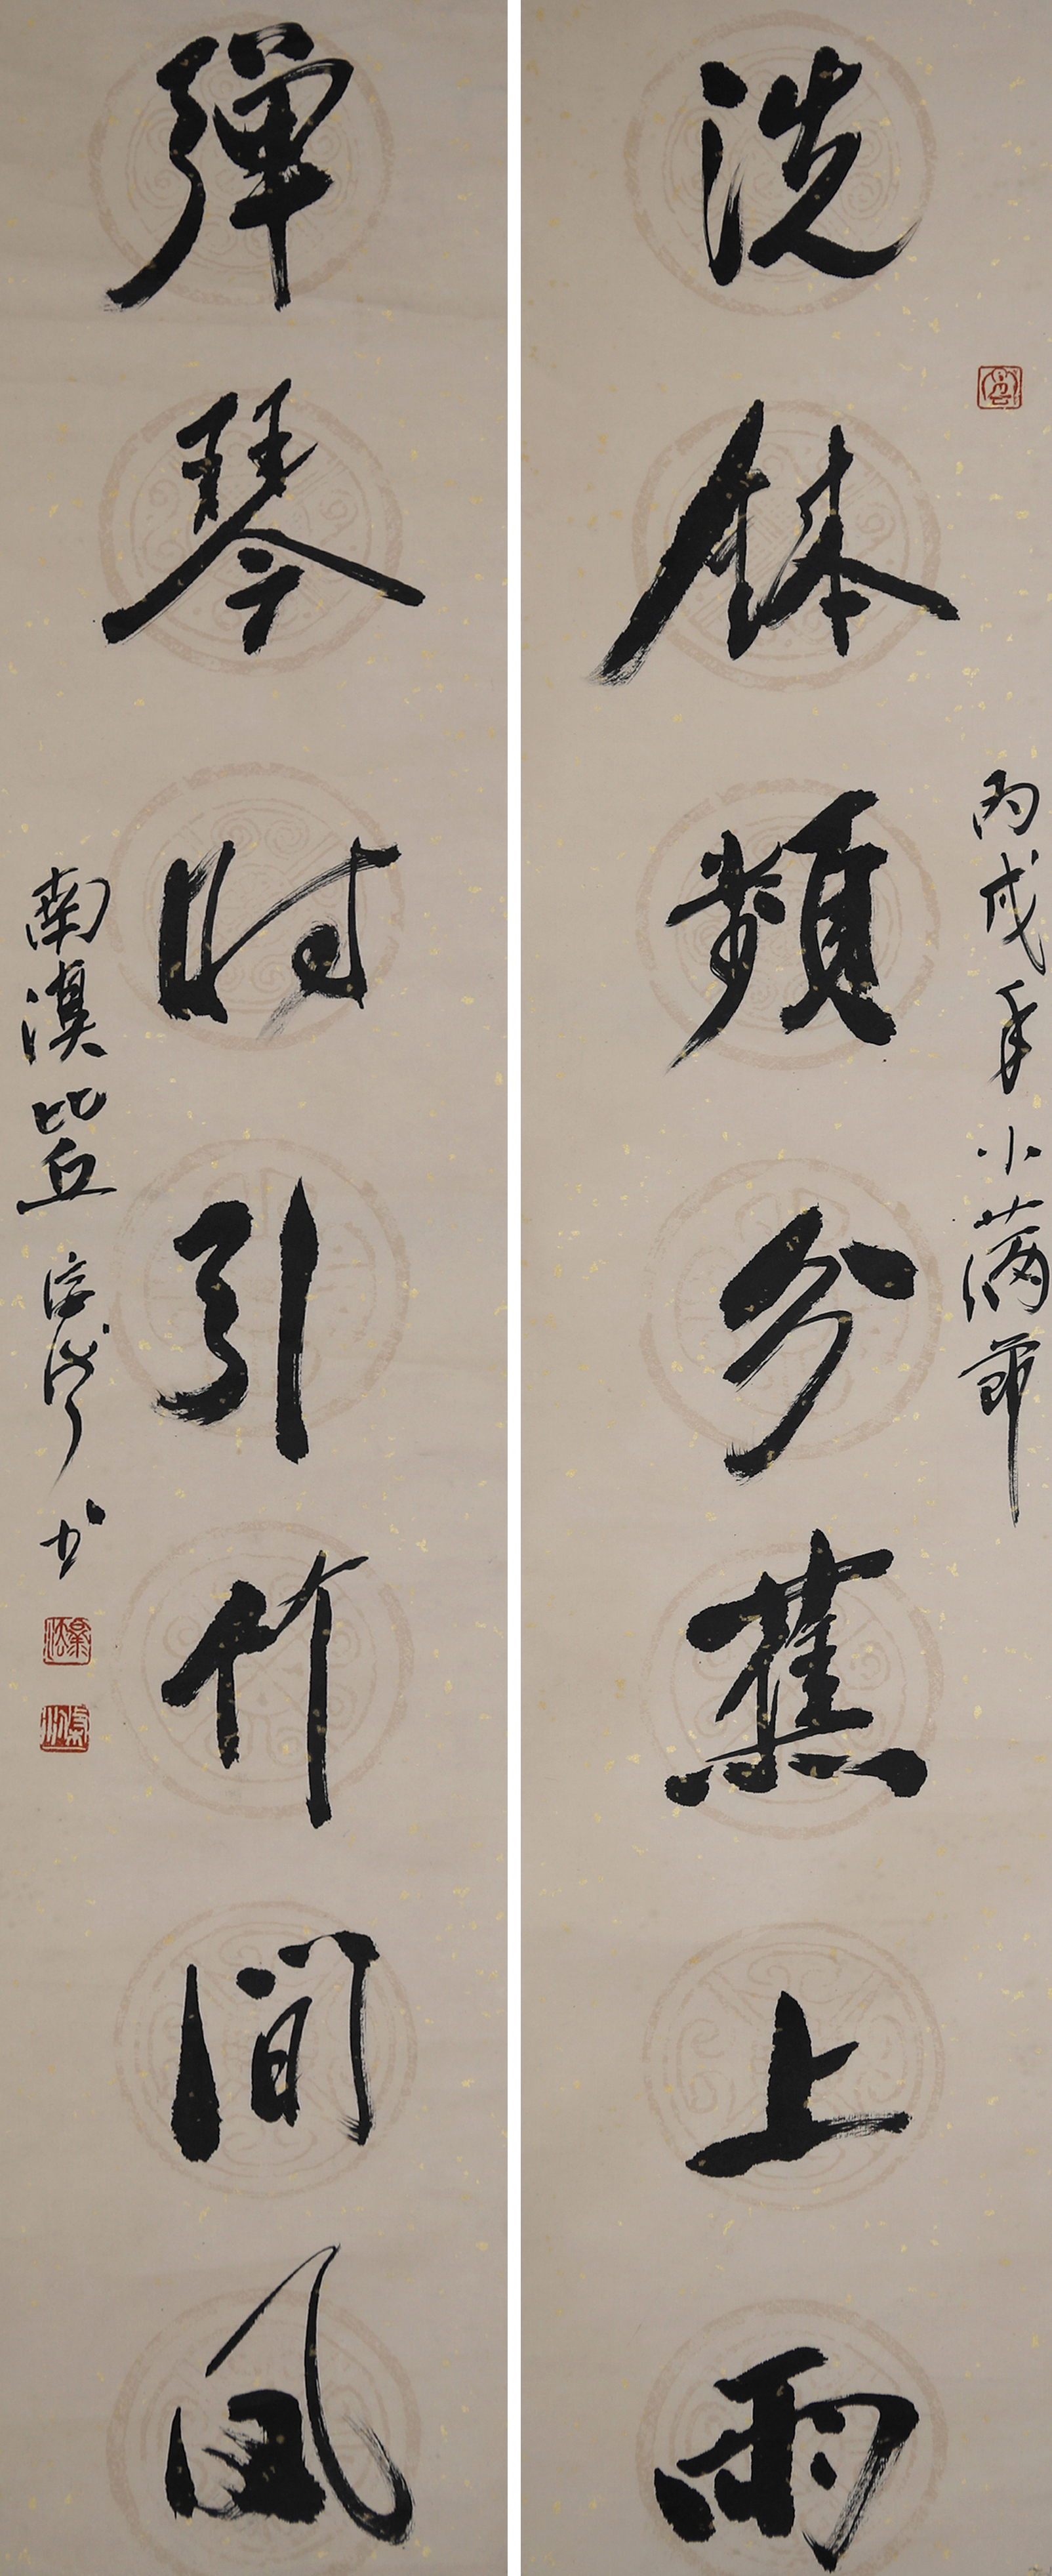 丙戌年小滿節
洗鉢頻分蕉上雨
彈琴時引竹間風
南溟比丘 书